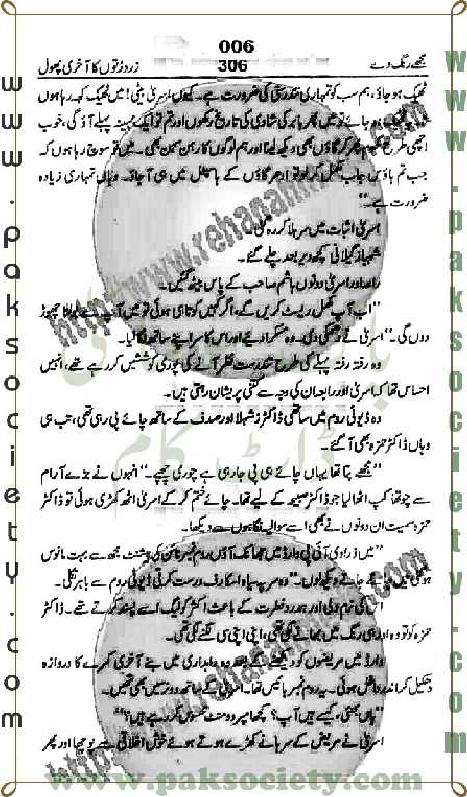 006
زرد رتوں کا آخری پھول 306 مجھے رنگ دے
ٹھیک ہو جاؤ، ہم سب کو تمہاری تندرستی کی ضرورت ہے۔ کیوں اسریٰ بیٹی! میں ٹھیک کہہ رہا ہوں
ہو جائے تو میں پھر بابر کی شادی کی تاریخ رکھوں اور تم تو ایک مہینہ پہلے آؤ گی، خوب
اچھی طرح گھوم پھر کر گاؤں بھی دیکھ لینا اور ہم لوگوں کا رہن سہن بھی۔ میں تو سوچ رہا ہوں کہ
جب تم ہاؤس جاب مکمل کر لو تو ادھر گاؤں کے ہاسپٹل میں ہی آ جاؤ۔ وہاں تمہاری زیادہ
ضرورت ہے۔"
اسریٰ اثبات میں سر ہلا کر رہ گئی۔
شہباز گیلانی کچھ دیر بعد چلے گئے۔
رابعہ اور اسریٰ دونوں ہاشم صاحب کے پاس بیٹھ گئیں۔
"اب آپ مکمل ریسٹ کریں گے، اگر کہیں کوتاہی ہوئی تو میں آپ سے بولنا چھوڑ
دوں گی۔" اسریٰ نے دھمکی دی۔ وہ مسکرا دیے اور اس کا سر اپنے ساتھ لگا لیا۔
وہ رفتہ رفتہ پہلے کی طرح تندرست نظر آنے کی پوری کوششیں کر رہے تھے، انہیں
احساس تھا کہ اسریٰ اور رابعہ ان کی وجہ سے کتنی پریشان رہتی ہیں۔
وہ ڈیوٹی روم میں ساتھی ڈاکٹر شہلا اور صدف کے ساتھ چائے پی رہی تھی، تب ہی
وہاں ڈاکٹر حمزہ بھی آ گئے۔
"مجھے پتا تھا یہاں چائے ہی پی جا رہی ہے چوری چھپے۔" انہوں نے بڑے آرام
سے چوتھا کپ اٹھا لیا جو ڈاکٹر صبیحہ کے لیے تھا۔ چائے ختم کر کے اسریٰ اٹھ کھڑی ہوئی تو ڈاکٹر
حمزہ سمیت ان دونوں نے بھی اسے سوالیہ نگاہوں سے دیکھا۔
"میں ذرا وی آئی پی وارڈ میں جھانک آؤں، روم نمبر نائن کی پیشنٹ مجھ سے بہت مانوس
ہو گئی جاتے دیکھ لوں۔" وہ سر پہ سیاہ اسکارف درست کرتی ڈیوٹی روم سے باہر نکلی۔
اس کی نرم دلی اور ہمدرد فطرت کے باعث اکثر کولیگ اسے پسند کرتے تھے۔ ڈاکٹر
حمزہ کو تو وہ اور ہی رنگ میں بھانے لگی تھی، اپنی اپنی سی لگنے لگی تھی۔
وارڈ میں مریضوں کو دیکھنے کے بعد وہ راہداری میں بنے آخری کمرے کا دروازہ
دھکیل کر اندر داخل ہوئی۔ یہ روم نمبر نائن تھا۔ اسریٰ کے ساتھ دو نرسیں بھی تھیں۔
"ہاں بھئی، کیسے ہیں آپ؟ کچھ امپروومنٹ محسوس کر رہے ہیں؟"
اسریٰ نے مریض کے سرہانے کھڑے ہوتے ہوئے خوش اخلاقی سے پوچھا اور پھر
http://www.rehanahmed.com
http://www.rehanahmed.com
ڈاٹ کام
www.paksociety.com
www.paksociety.com
www.paksociety.com